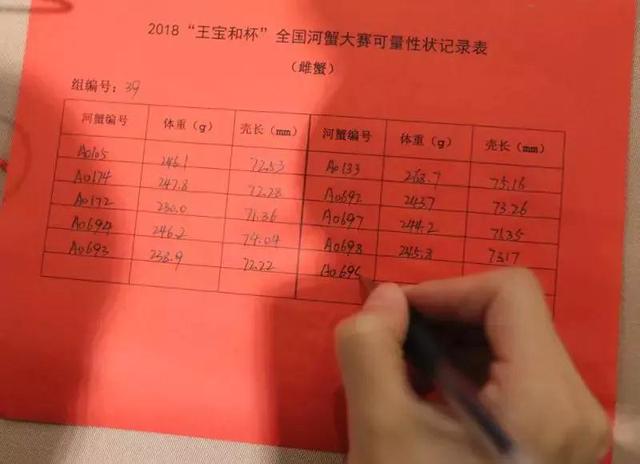 2018“王宝和杯”全国河蟹大赛可量性状记录表
(雌蟹)
组编号: 39
河蟹编号 体重 (g) 壳长 (mm) 河蟹编号 体重 (g) 壳长 (mm)
A0105 246.1 72.53 A0133 263.7 75.16
A0174 247.8 72.28 A0692 243.7 73.26
A0172 230.0 71.36 A0697 244.2 71.35
A0694 246.2 74.04 A0698 245.8 73.17
A0693 238.9 72.22